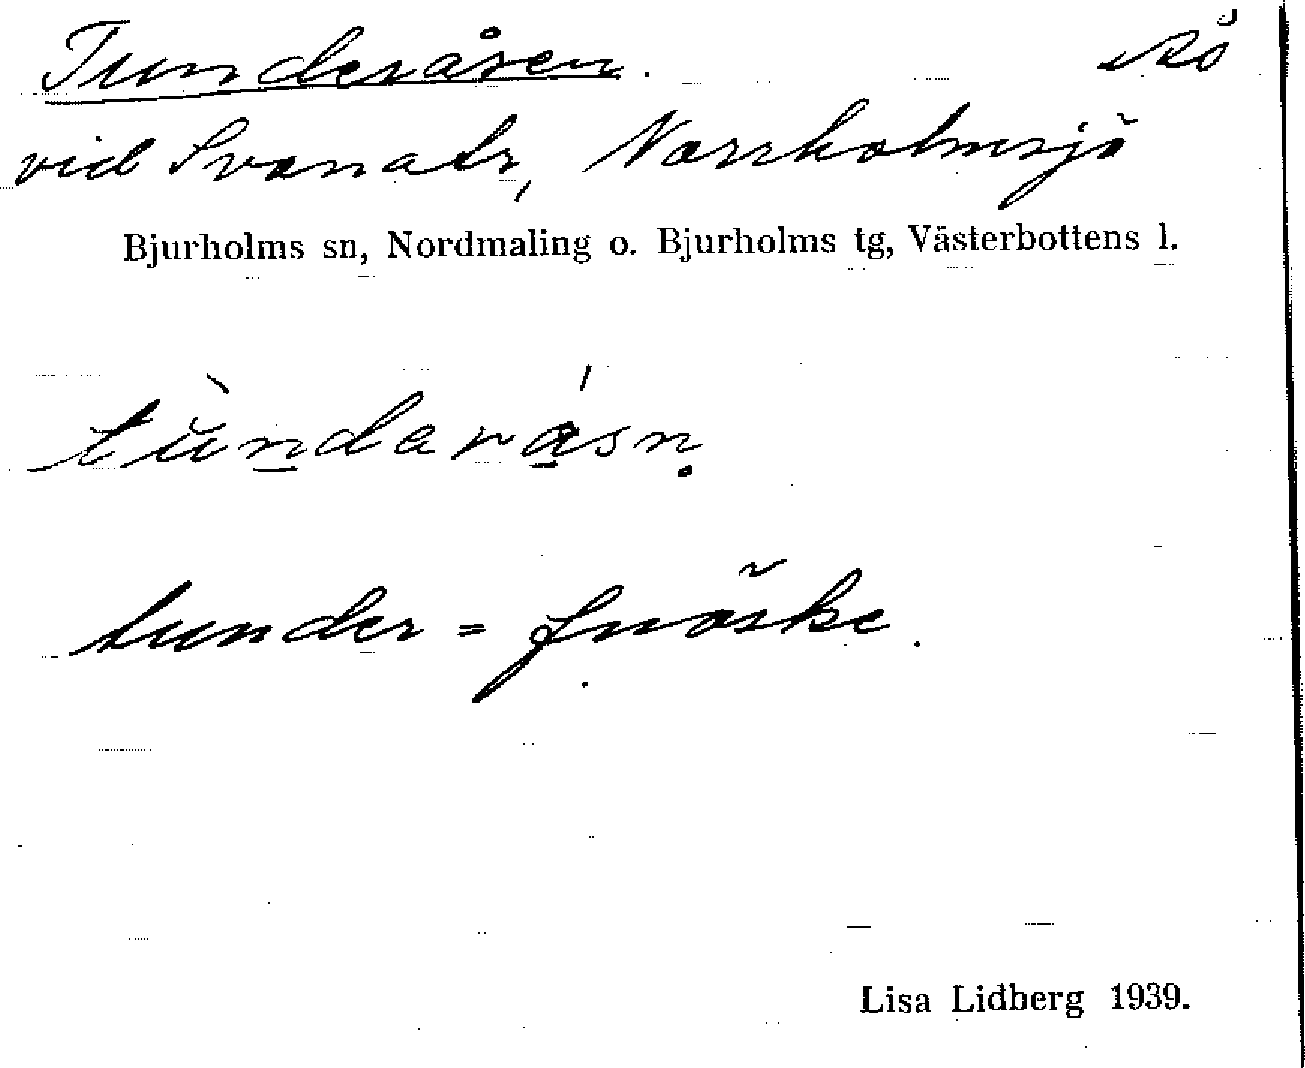 Tunderåsen.
vid Svanatr, Norrholmsjö
Bjurholms sn, Nordmaling o. Bjurholms tg, Västerbottens l.
tùndarásn̥
tunder = fnöske.
Lisa Lidberg 1939.